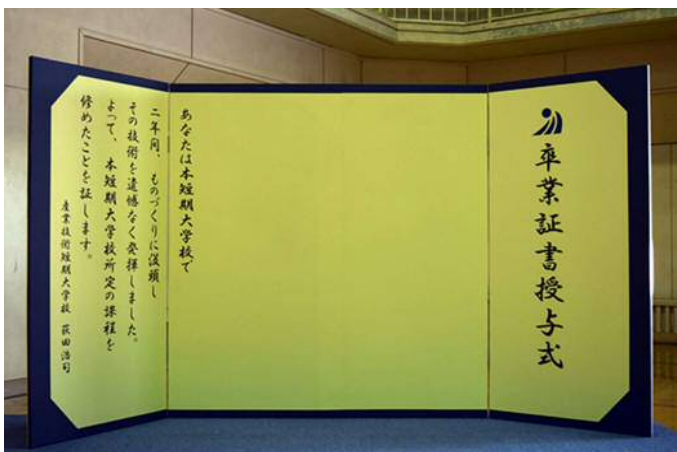 卒業証書授与式
あなたは本短期大学校で
二年間、ものづくりに没頭し
その技術を遺憾なく発揮しました。
よって、本短期大学校所定の課程を
修めたことを証します。
産業技術短期大学校 萩田浩司